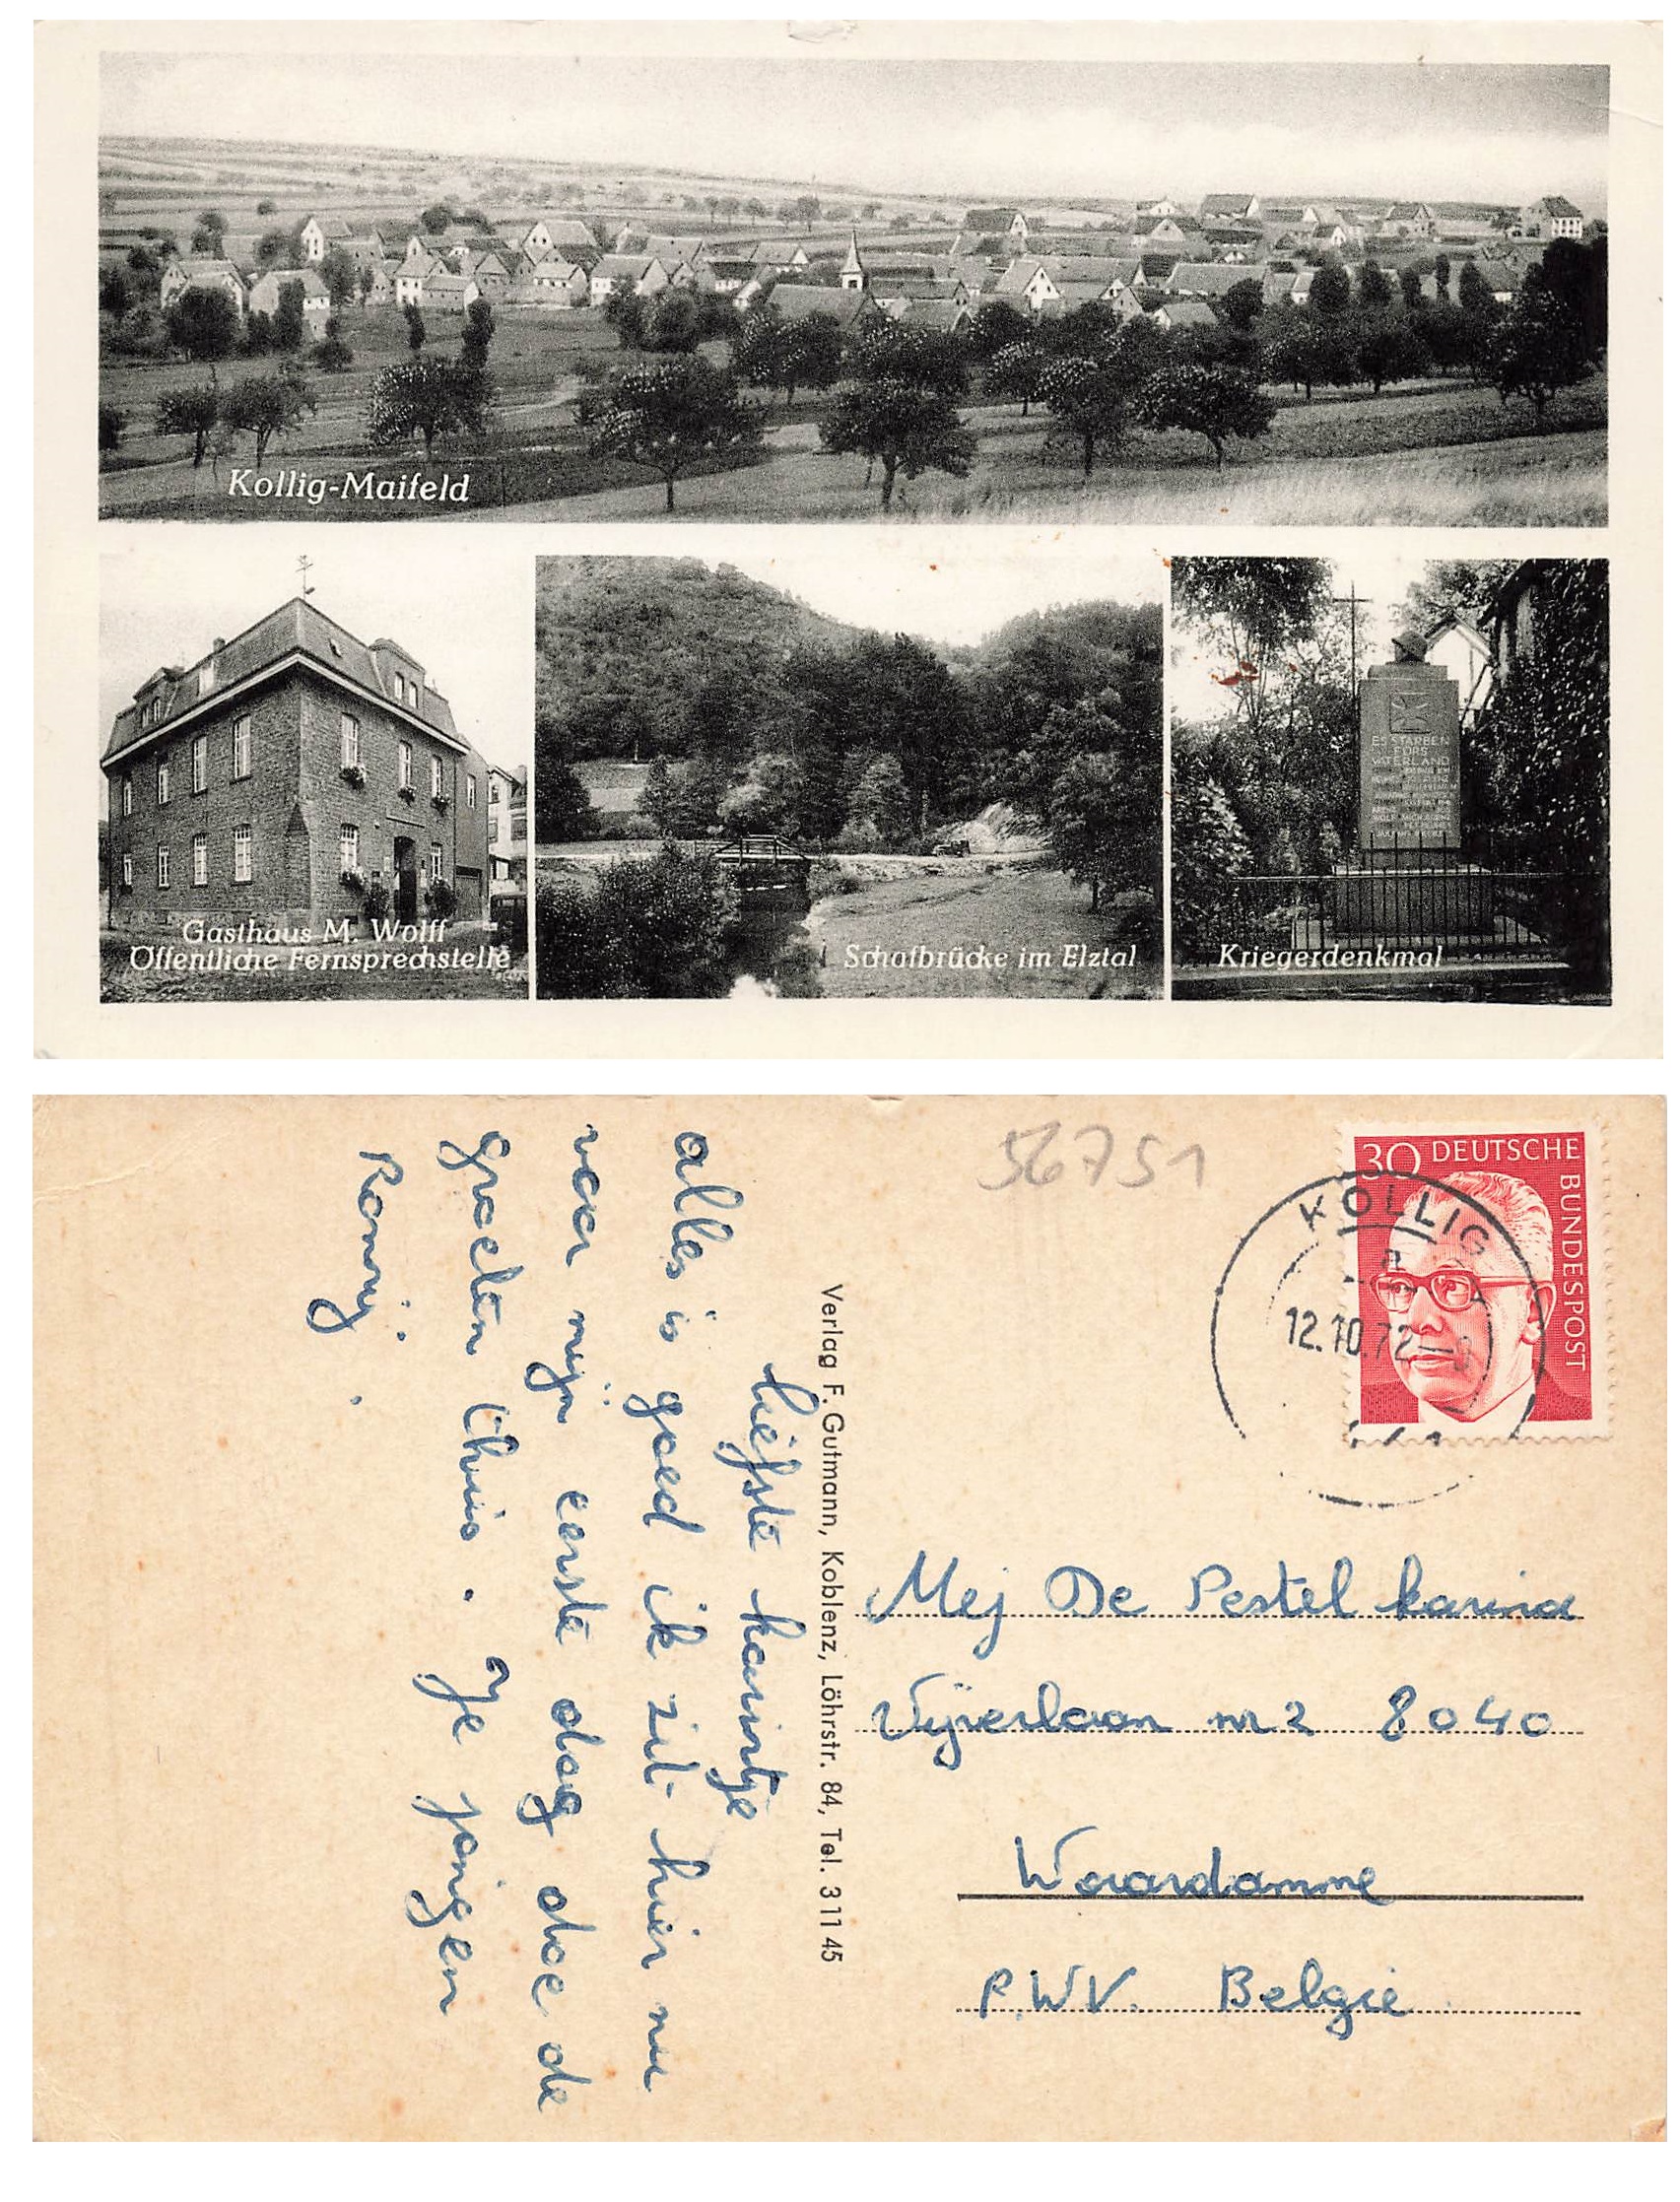 Kollig-Maifeld
Gasthaus M. Wolff
Öffentliche Fernsprechstelle
Schafbrücke im Elztal
Kriegerdenkmal
ES STARBEN
FÜRS
VATERLAND
56751
30 DEUTSCHE
BUNDESPOST
KOLLIG
12.10.72
Verlag F. Gutmann, Koblenz, Löhrstr. 84, Tel. 3 11 45
liefste karintje
alles is goed ik zit hier nu
voor mijn eerste dag doe de
groeten thuis. Je jongen
Ronny.
Mej De Pestel karina
Vijverlaan nr 2 8040
Waardamme
P.W.V. Belgie